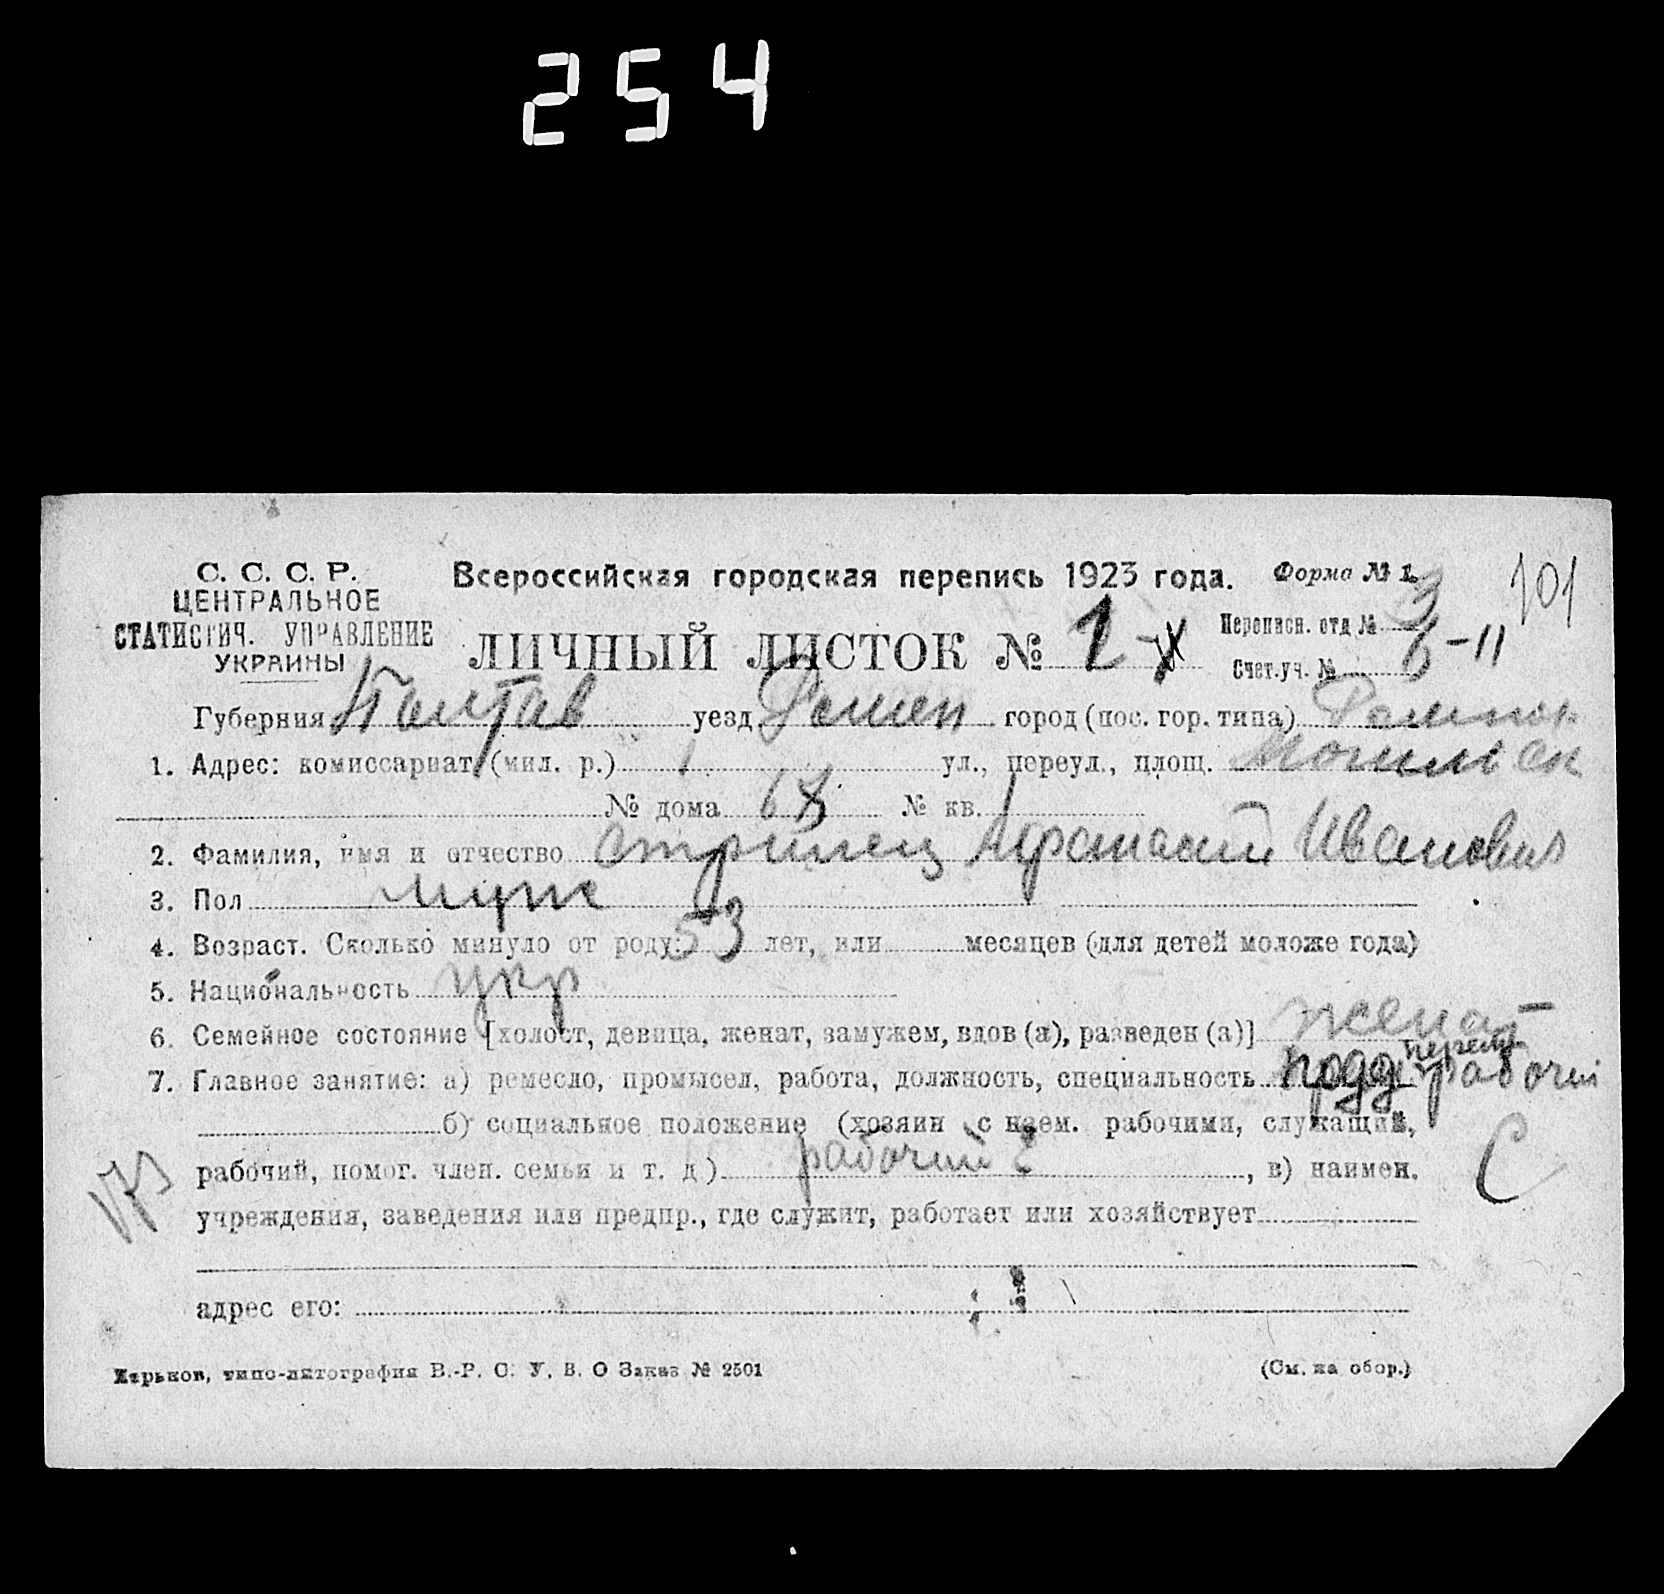 254
С. С. С. Р.
ЦЕНТРАЛЬНОЕ
СТАТИСТИЧ. УПРАВЛЕНИЕ
УКРАИНЫ
Всероссийская городская перепись 1923 года.
Форма № 1.
101
ЛИЧНЫЙ ЛИСТОК № 1
Переписн. отд № 3
Счет.уч. № 6-11
Губерния Полтав уезд Ромен город (пос. гор. типа)
1. Адрес: комиссариат (мил. р.) 1 ул., переул., площ.
№ дома 68 № кв.
2. Фамилия, имя и отчество Стрилец Афанасий Иванович
3. Пол муж
4. Возраст. Сколько минуло от роду: 53 лет, или месяцев (для детей моложе года)
5. Национальность укр
6. Семейное состояние [холост, девица, женат, замужем, вдов (а), разведен (а)] женат
7. Главное занятие: а) ремесло, промысел, работа, должность, специальность рабочий
б) социальное положение (хозяин с наем. рабочими, служащий,
рабочий, помог. член. семьи и т. д.) рабочий , в) наимен.
С
учреждения, заведения или предпр., где служит, работает или хозяйствует
адрес его:
Харьков, типо-литография В.-Р. С. У. В. О Заказ № 2501
(См. на обор.)